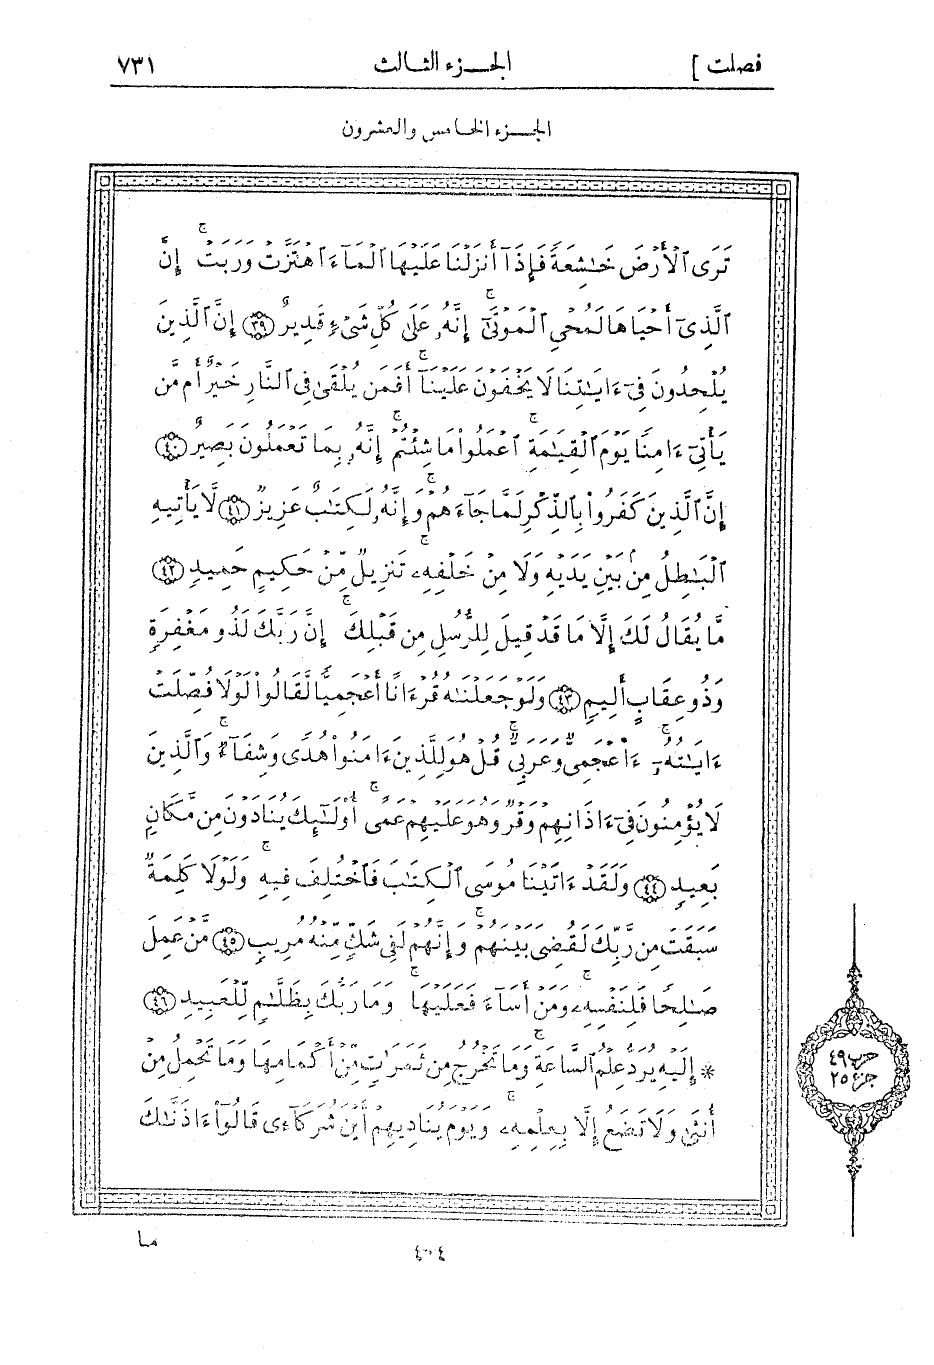 فصلت ] الجزء الثالث ٧٣١
الجزء الخامس والعشرون
تَرَى ٱلْأَرْضَ خَٰشِعَةً فَإِذَآ أَنزَلْنَا عَلَيْهَا ٱلْمَآءَ ٱهْتَزَّتْ وَرَبَتْ ۚ إِنَّ
ٱلَّذِىٓ أَحْيَاهَا لَمُحْىِ ٱلْمَوْتَىٰٓ ۚ إِنَّهُۥ عَلَىٰ كُلِّ شَىْءٍ قَدِيرٌ ﴿٣٩﴾ إِنَّ ٱلَّذِينَ
يُلْحِدُونَ فِىٓ ءَايَٰتِنَا لَا يَخْفَوْنَ عَلَيْنَآ ۗ أَفَمَن يُلْقَىٰ فِى ٱلنَّارِ خَيْرٌ أَم مَّن
يَأْتِىٓ ءَامِنًا يَوْمَ ٱلْقِيَٰمَةِ ۚ ٱعْمَلُوا۟ مَا شِئْتُمْ ۖ إِنَّهُۥ بِمَا تَعْمَلُونَ بَصِيرٌ ﴿٤٠﴾
إِنَّ ٱلَّذِينَ كَفَرُوا۟ بِٱلذِّكْرِ لَمَّا جَآءَهُمْ ۖ وَإِنَّهُۥ لَكِتَٰبٌ عَزِيزٌ ﴿٤١﴾ لَّا يَأْتِيهِ
ٱلْبَٰطِلُ مِنۢ بَيْنِ يَدَيْهِ وَلَا مِنْ خَلْفِهِۦ ۖ تَنزِيلٌ مِّنْ حَكِيمٍ حَمِيدٍ ﴿٤٢﴾
مَّا يُقَالُ لَكَ إِلَّا مَا قَدْ قِيلَ لِلرُّسُلِ مِن قَبْلِكَ ۚ إِنَّ رَبَّكَ لَذُو مَغْفِرَةٍ
وَذُو عِقَابٍ أَلِيمٍ ﴿٤٣﴾ وَلَوْ جَعَلْنَٰهُ قُرْءَانًا أَعْجَمِيًّا لَّقَالُوا۟ لَوْلَا فُصِّلَتْ
ءَايَٰتُهُۥٓ ۖ ءَا۬عْجَمِىٌّ وَعَرَبِىٌّ ۗ قُلْ هُوَ لِلَّذِينَ ءَامَنُوا۟ هُدًى وَشِفَآءٌ ۖ وَٱلَّذِينَ
لَا يُؤْمِنُونَ فِىٓ ءَاذَانِهِمْ وَقْرٌ وَهُوَ عَلَيْهِمْ عَمًى ۚ أُو۟لَٰٓئِكَ يُنَادَوْنَ مِن مَّكَانٍۭ
بَعِيدٍ ﴿٤٤﴾ وَلَقَدْ ءَاتَيْنَا مُوسَى ٱلْكِتَٰبَ فَٱخْتُلِفَ فِيهِ ۗ وَلَوْلَا كَلِمَةٌ
سَبَقَتْ مِن رَّبِّكَ لَقُضِىَ بَيْنَهُمْ ۚ وَإِنَّهُمْ لَفِى شَكٍّ مِّنْهُ مُرِيبٍ ﴿٤٥﴾ مَّنْ عَمِلَ
صَٰلِحًا فَلِنَفْسِهِۦ ۖ وَمَنْ أَسَآءَ فَعَلَيْهَا ۗ وَمَا رَبُّكَ بِظَلَّٰمٍ لِّلْعَبِيدِ ﴿٤٦﴾
* إِلَيْهِ يُرَدُّ عِلْمُ ٱلسَّاعَةِ ۚ وَمَا تَخْرُجُ مِن ثَمَرَٰتٍ مِّنْ أَكْمَامِهَا وَمَا تَحْمِلُ مِنْ
أُنثَىٰ وَلَا تَضَعُ إِلَّا بِعِلْمِهِۦ ۚ وَيَوْمَ يُنَادِيهِمْ أَيْنَ شُرَكَآءِى قَالُوٓا۟ ءَاذَنَّٰكَ
حزب ٤٩
جزء ٢٥
ما
٤٠٤